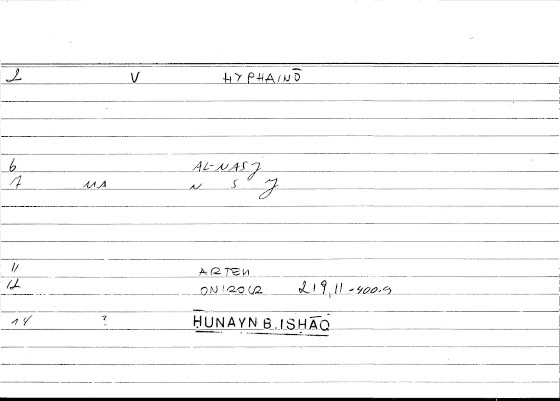 2 V HYPHAINŌ
6 AL-NASJ
7 MA N S J
11 ARTEM
12 ONIROCR 219,11-400.9
14 ? HUNAYN B. ISHĀQ